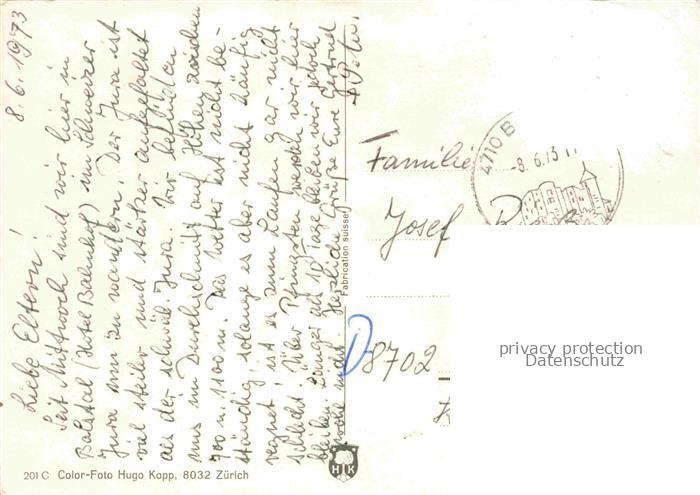 8.6.1973
Liebe Eltern!
Seit Mittwoch sind wir hier in
Balstal (Hotel Bahnhof) im Schweizer
Jura um zu wandern. Der Jura ist
viel steiler und stärker aufgefaltet
als der schwäb. Jura. Wir befinden
uns im Durchschnitt auf Höhen zwischen
700 m. 1100 m. Das Wetter ist nicht be-
ständig solange es aber nicht häufig
regnet ist es zum Laufen gar nicht
schlecht. Über Pfingsten werden wir hier
bleiben. Länger als 10 Tage bleiben wir jedoch
nicht. Herzliche Grüße Eure Gertrud
+ Peter.
Fabrication suisse
Familie
Josef
D-8702
4710 B
-8.6.73
privacy protection
Datenschutz
HK
201 C Color-Foto Hugo Kopp, 8032 Zürich